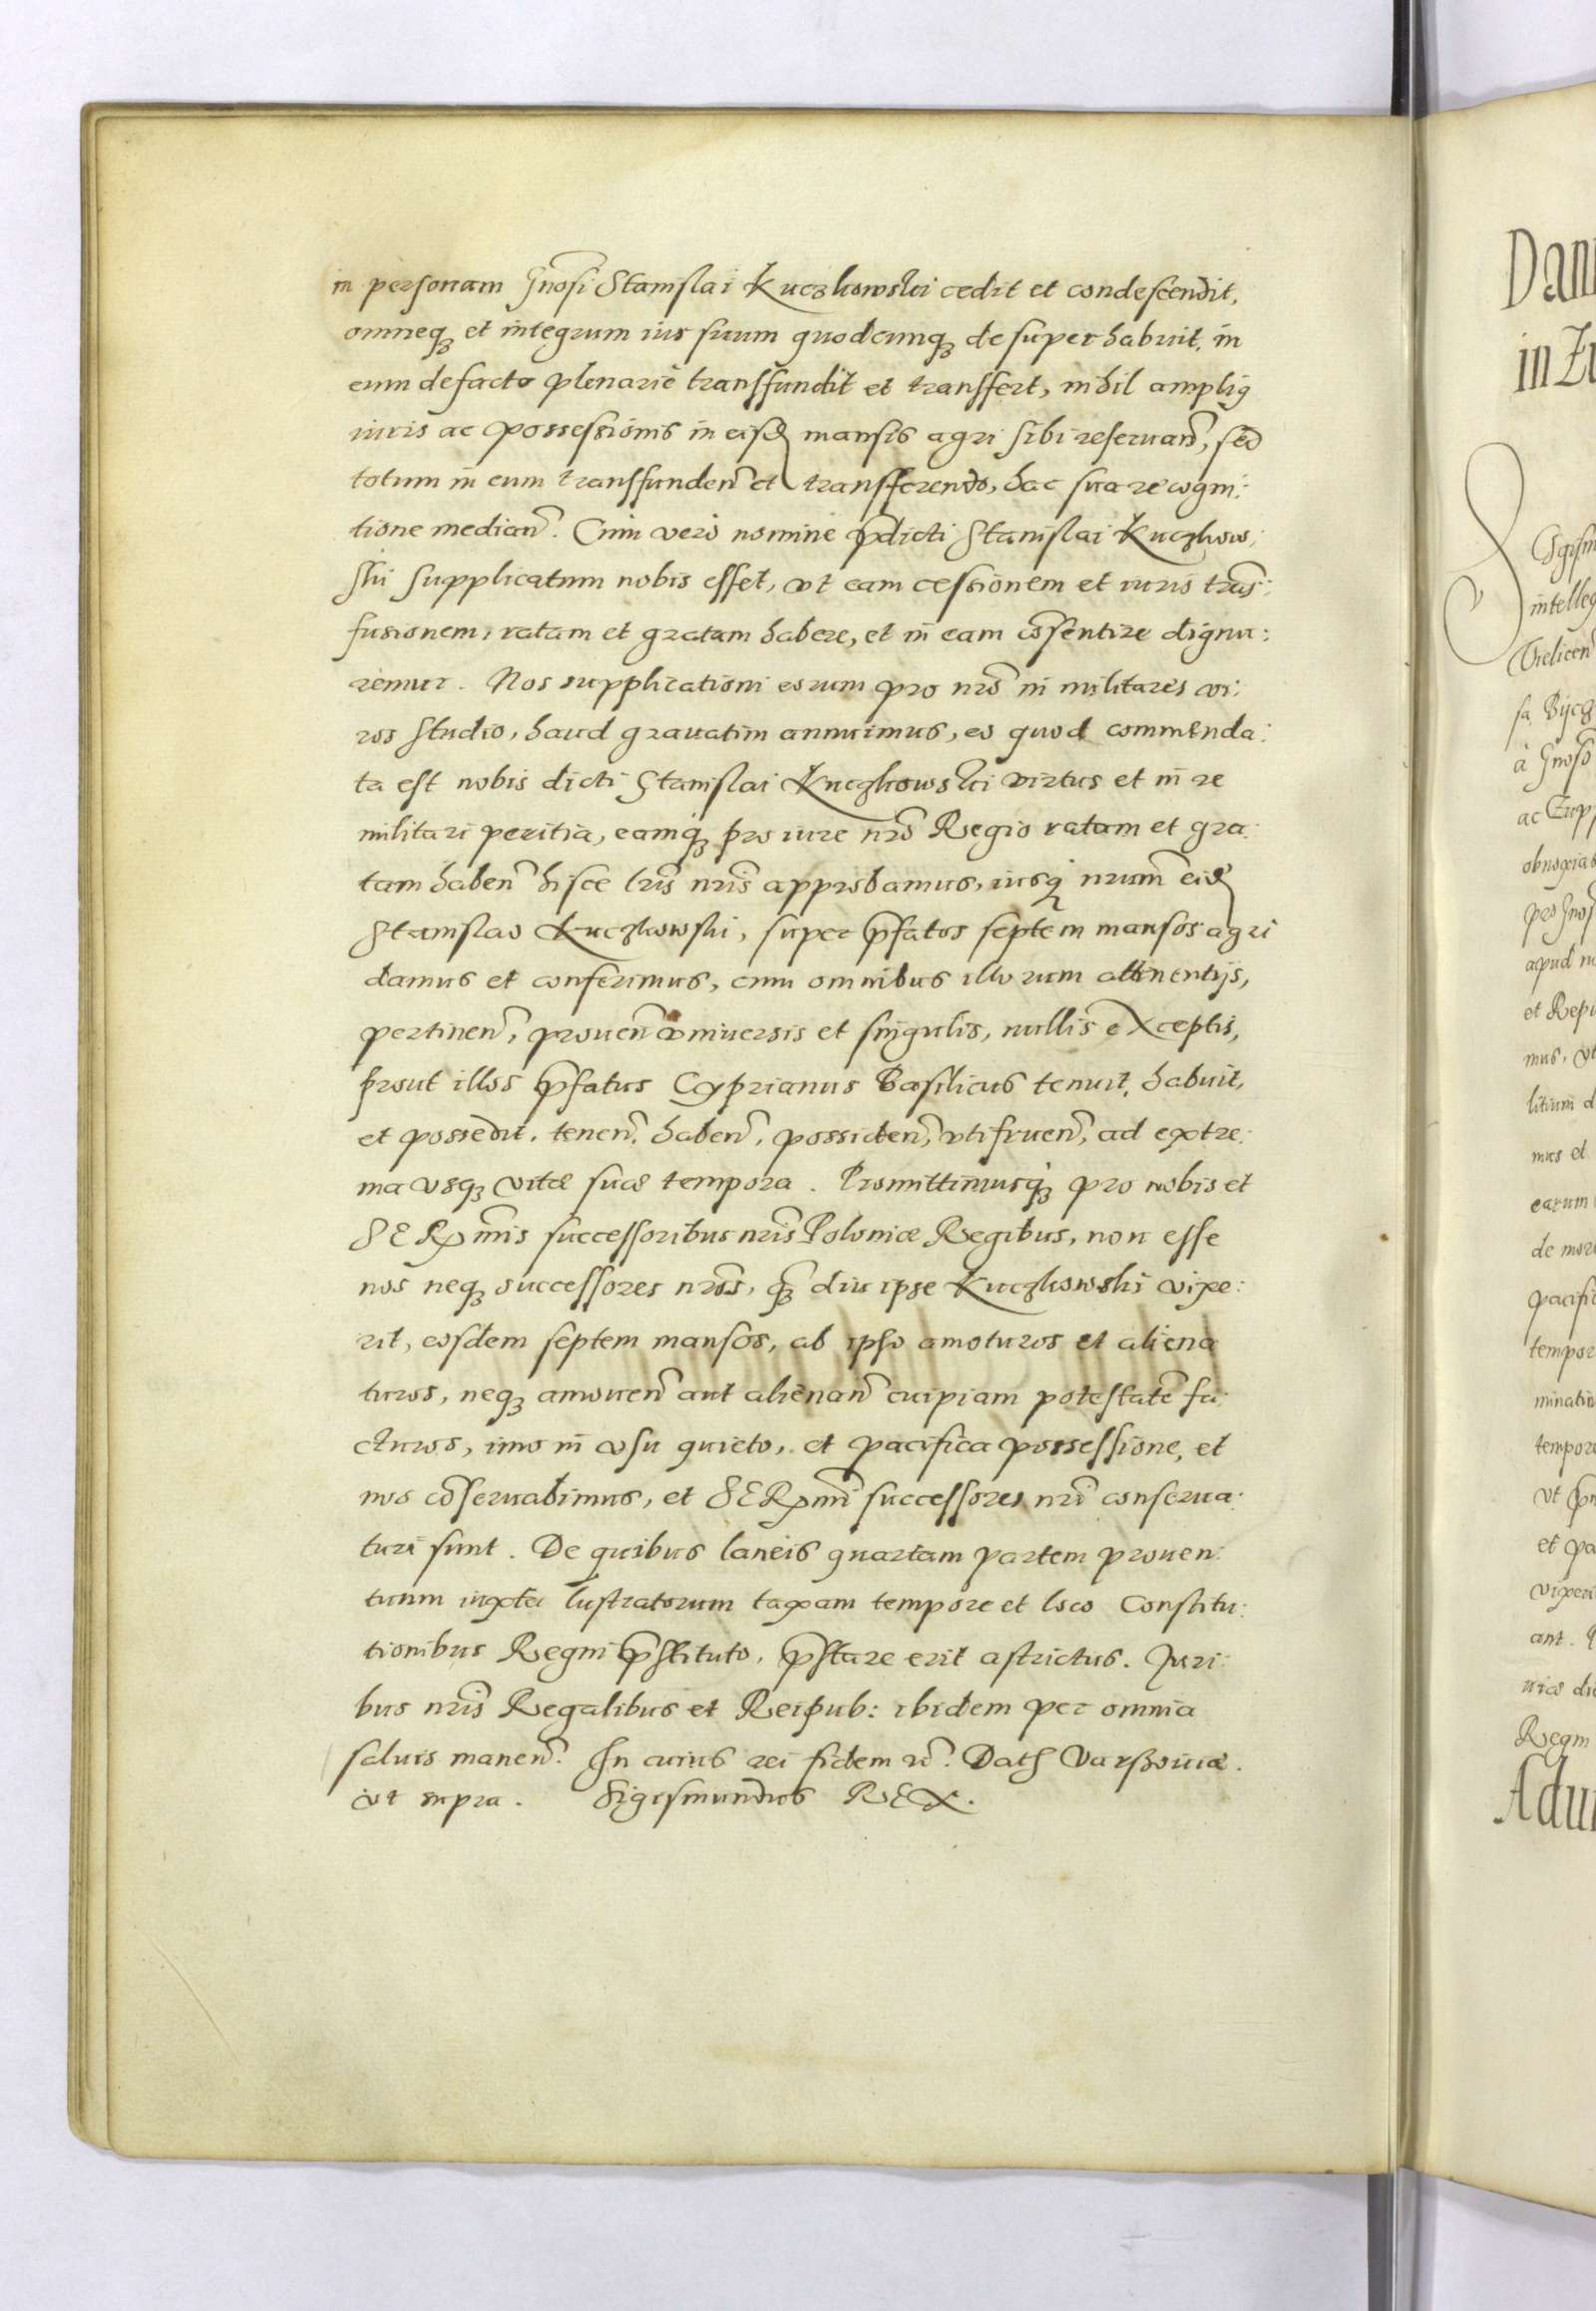 in personam Gnosi Stanislai Kuczkowski cedit et condescendit,
omneq₃ et integrum ius suum quodcunq₃ desuper habuit, in
eum defacto plenariè transfundit et transfert, nihil ampliꝰ
iuris ac possessionis in eisd mansis agri sibi reseruan̄, sed
totum in eum transfunden̄ et transferendo, hac sua recogni:
tione median̄. Cum verò nomine p̄dicti Stanislai Kuczkow:
ski supplicatum nobis esset, vt eam cessionem et iuris trās:
fusionem, ratam et gratam habere, et in eam cōsentire digna:
remur. Nos supplicationi eorum pro nrō in militares vi:
ros studio, haud grauatim annuimus, eo quod commenda:
ta est nobis dicti Stanislai Kuczkowski virtus et in re
militari peritia, eamq₃ pro iure nrō Regio ratam et gra:
tam haben̄ hisce lrīs nrīs approbamus, iusq₃ nrūm eid
Stanislao Kuczkowski, super p̄fatos septem mansos agri
damus et conferimus, cum omnibus illorum attinentijs,
pertinen̄, prouen̄ vniuersis et singulis, nullis exceptis,
prout illos p̄fatus Cyprianus Basilicus tenuit, habuit,
et possedit, tenen̄, haben̄, possiden̄, vtifruen̄, ad extre:
ma vsq₃ vitæ suæ tempora. Promittimusq₃ pro nobis et
SERmīs successoribus nrīs Poloniæ Regibus, non esse
nos neq₃ successores nrōs, q̄₃ diu ipse Kuczkowski vixe:
rit, eosdem septem mansos, ab ipso amoturos et aliena
turos, neq₃ amouen̄ aut alienan̄ cuipiam potestatē fa:
cturos, imo in vsu quieto, et pacifica possessione, et
nos cōseruabimus, et SERmī successores nrī conserua:
turi sunt. De quibus laneis quartam partem prouen:
tuum iuxta lustratorum taxam tempore et loco Constitu:
tionibus Regni p̄stituto, p̄stare erit astrictus. Juri:
bus nrīs Regalibus et Reipub: ibidem per omnia
saluis manen̄. In cuius rei fidem rc̄. Dat Varssouiæ.
vt supra. Sigismundus REX.
Dani
in Zu
Sigism
intelleg
Vielicen̄
sa Bijcz
à Gnoso
ac Zupp
obnoxias
pro Gnos
apud no
et Repu
mus, vt
litium d
mus et
earum
de mor
pacific
tempor
minatio
tempore
vt p̄
et pa
vixeri
ant.
uiæ di
Regni
Adui